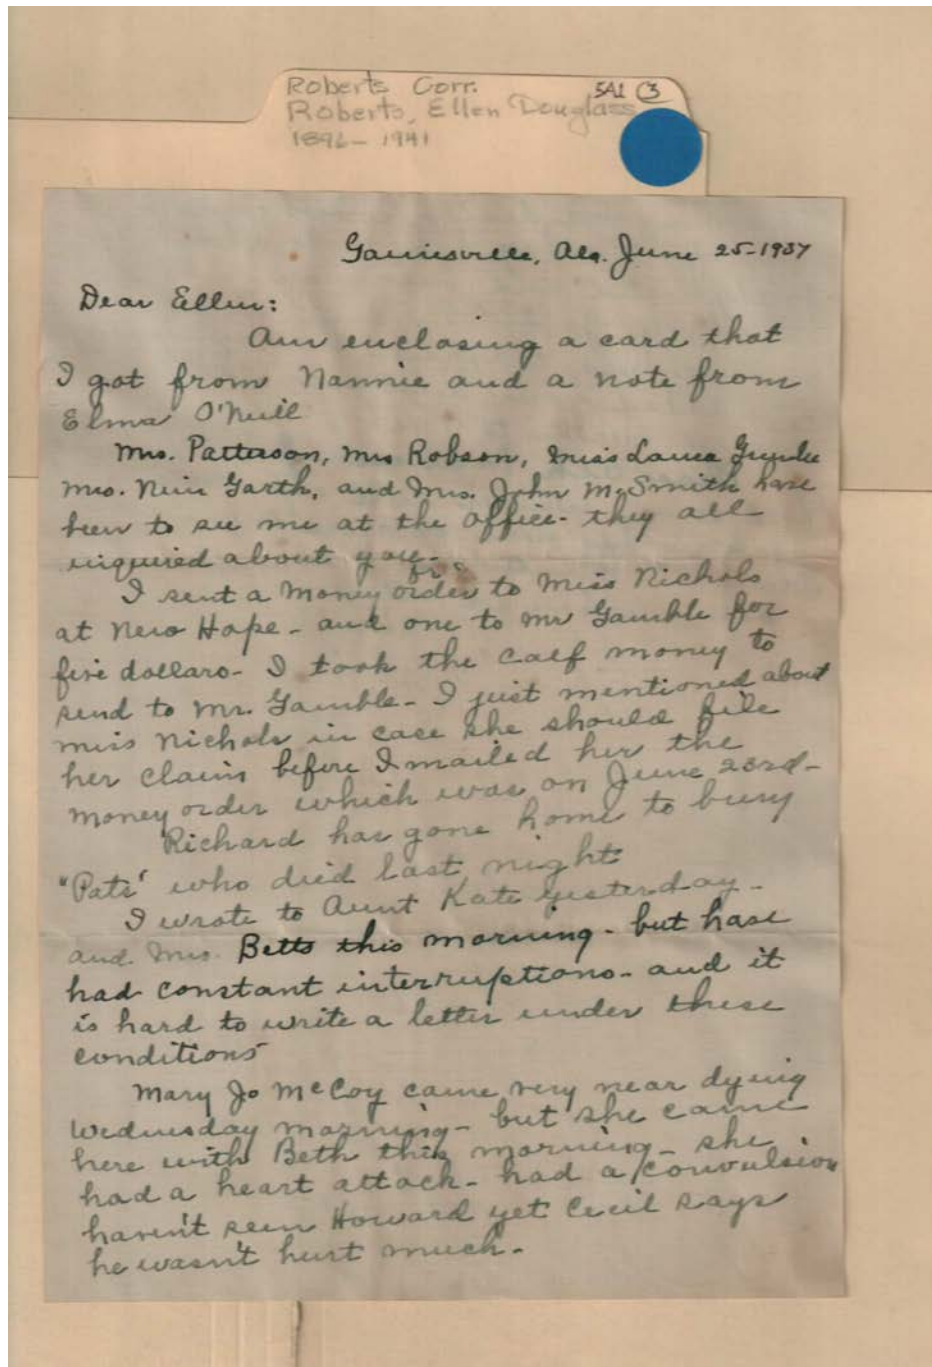 Roberts Corr. 5A1 3
Roberts, Ellen Douglass
1896-1941
Gainesville, Ala. June 25-1937
Dear Ellen:
Am enclosing a card that
I got from Nannie and a note from
Elma O'Neill
Mrs. Patterson, Mrs Robson, Miss Laura
Mrs. Garth, and Mrs. John M. Smith have
been to see me at the office- they all
inquired about you.
I sent a money order to Miss Nichols
at New Hope - and one to Mr Gamble for
five dollars- I took the calf money to
send to Mr. Gamble- I just mentioned about
Miss Nichols in case she should file
her claim before I mailed her the
money order which was on June 23rd-
Richard has gone home to bury
"Pats" who died last night
I wrote to Aunt Kate yesterday-
and Mrs. Betts this morning- but have
had constant interruptions- and it
is hard to write a letter under these
conditions
Mary Jo McCoy came very near dying
Wednesday morning- but she came
here with Beth this morning- she
had a heart attack- had a convulsion
haven't seen Howard yet Cecil says
he wasn't hurt much-